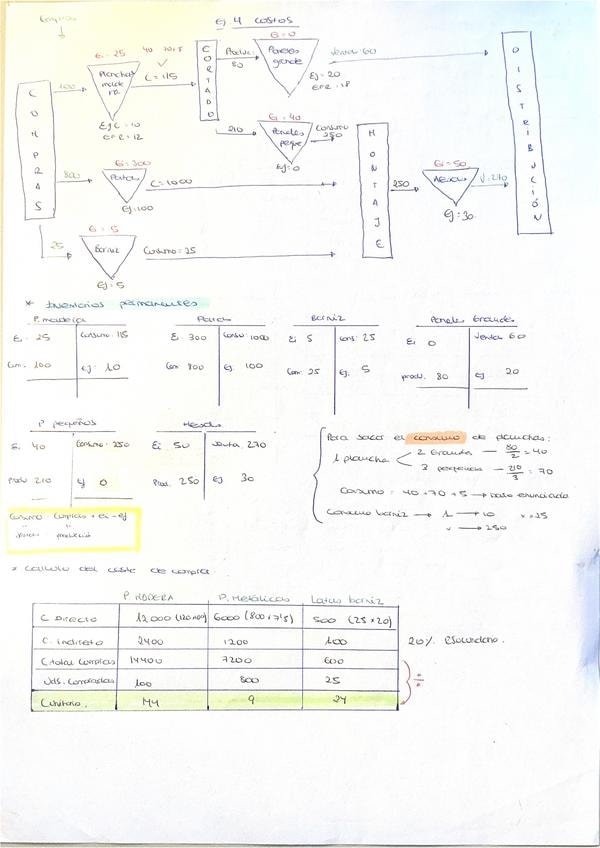 Ej 4 costos
Compras
Ei = 25
40 70+5
Planchas madera
C = 115
100
Ef C = 10
Ef R = 12
COMPRAS
CORTADO
Produc:
80
Ei = 0
Paneles grande
Ventas: 60
Ef = 20
Ef R = 18
DISTRIBUCIÓN
210
Ei = 40
Paneles peque
Consumo 250
Ef = 0
MONTAJE
800
Ei = 300
Patas
C = 1000
Ef: 100
250
Ei = 50
Mesas
V: 270
Ef: 30
25
Ei = 5
Barniz
Consumo = 25
Ef = 5
* Inventarios permanentes
P. madera
Ei = 25
Consumo: 115
Com: 100
Ef: 10
Patas
Ei = 300
Consu: 1000
Com 800
Ef. 100
Barniz
Ei 5
Cons: 25
Com: 25
Ef. 5
Paneles Grandes
Ei 0
Ventas 60
prod. 80
Ef 20
P pequeños
Ei 40
Consumo: 250
Prod 210
Ef 0
Mesas
Ei 50
Venta: 270
Prod. 250
Ef 30
Para sacar el consumo de planchas:
1 plancha
2 Grandes — 80/2 = 40
3 pequeñas — 210/3 = 70
Consumo = 40 + 70 + 5 → dato enunciado
Consumo barniz → 1 → 10
x → 250
x = 25
Consumo = Compras + Ei - Ef
ventas producción
* Calculo del coste de compra
P. MADERA P. Metálicas Latas barniz
C. Directo 12.000 (120·100) 6000 (800 x 7'5) 500 (25 x 20)
C. Indirecto 2400 1200 100
20%
C total compras 14400 7200 600
Uds. Compradas 100 800 25
C unitario. 144 9 24
÷